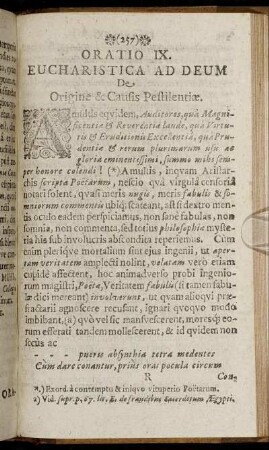 (257)
ORATIO IX.
EUCHARISTICA AD DEUM
De
Origine & Causis Pestilentiæ.
AMultis eqvidem, Auditores, quà Magni-
ficentiæ & Reverentiæ laude, quà Virtu-
tis & Eruditionis Excellentiâ, quà Pru-
dentiæ & rerum plurimarum usu ac
gloriâ eminentissimi, summo mihi sem-
per honore colendi! (*) A multis, inqvam Aristar-
chis scripta Poëtarum, nescio qvâ virgulâ censoriâ
notari solent, qvasi vacuis nugis, meris fabulis &
commentis ubiqꝫ scateant, at si dextro men-
tis oculo eadem perspiciamus, non sanè fabulas, non
somnia, non commenta, sed totius philosophiæ myste-
ria his sub involucris abscondita reperiemus. Cùm
plerique mortalium sint ejus ingenii, ut aper-
tam veritatem amplecti nolint, velatam verò etiam
cupidè affectent, hoc animadverso probi ingenio-
rum magistri, Poëtæ, Veritatem fabulis (si tamen fabu-
læ dici mereant) involverunt, ut quam alioqvi præ-
fractarii agnoscere recusant, ignari qvoqvo modo
imbibant, (a) quò vel sic mansvescerent, mores
eorum efferati tandem mollescerent, & id qvidem non
secùs ac
- - - pueris absynthia tetra medentes
Cum dare conantur, priùs oras pocula circum
R Con-
*.) Exord. à contemptu & iniqvo vituperio Poëtarum.
a) Vid. supr. p. 67. lit. E. de Sacerdotum Ægypti.